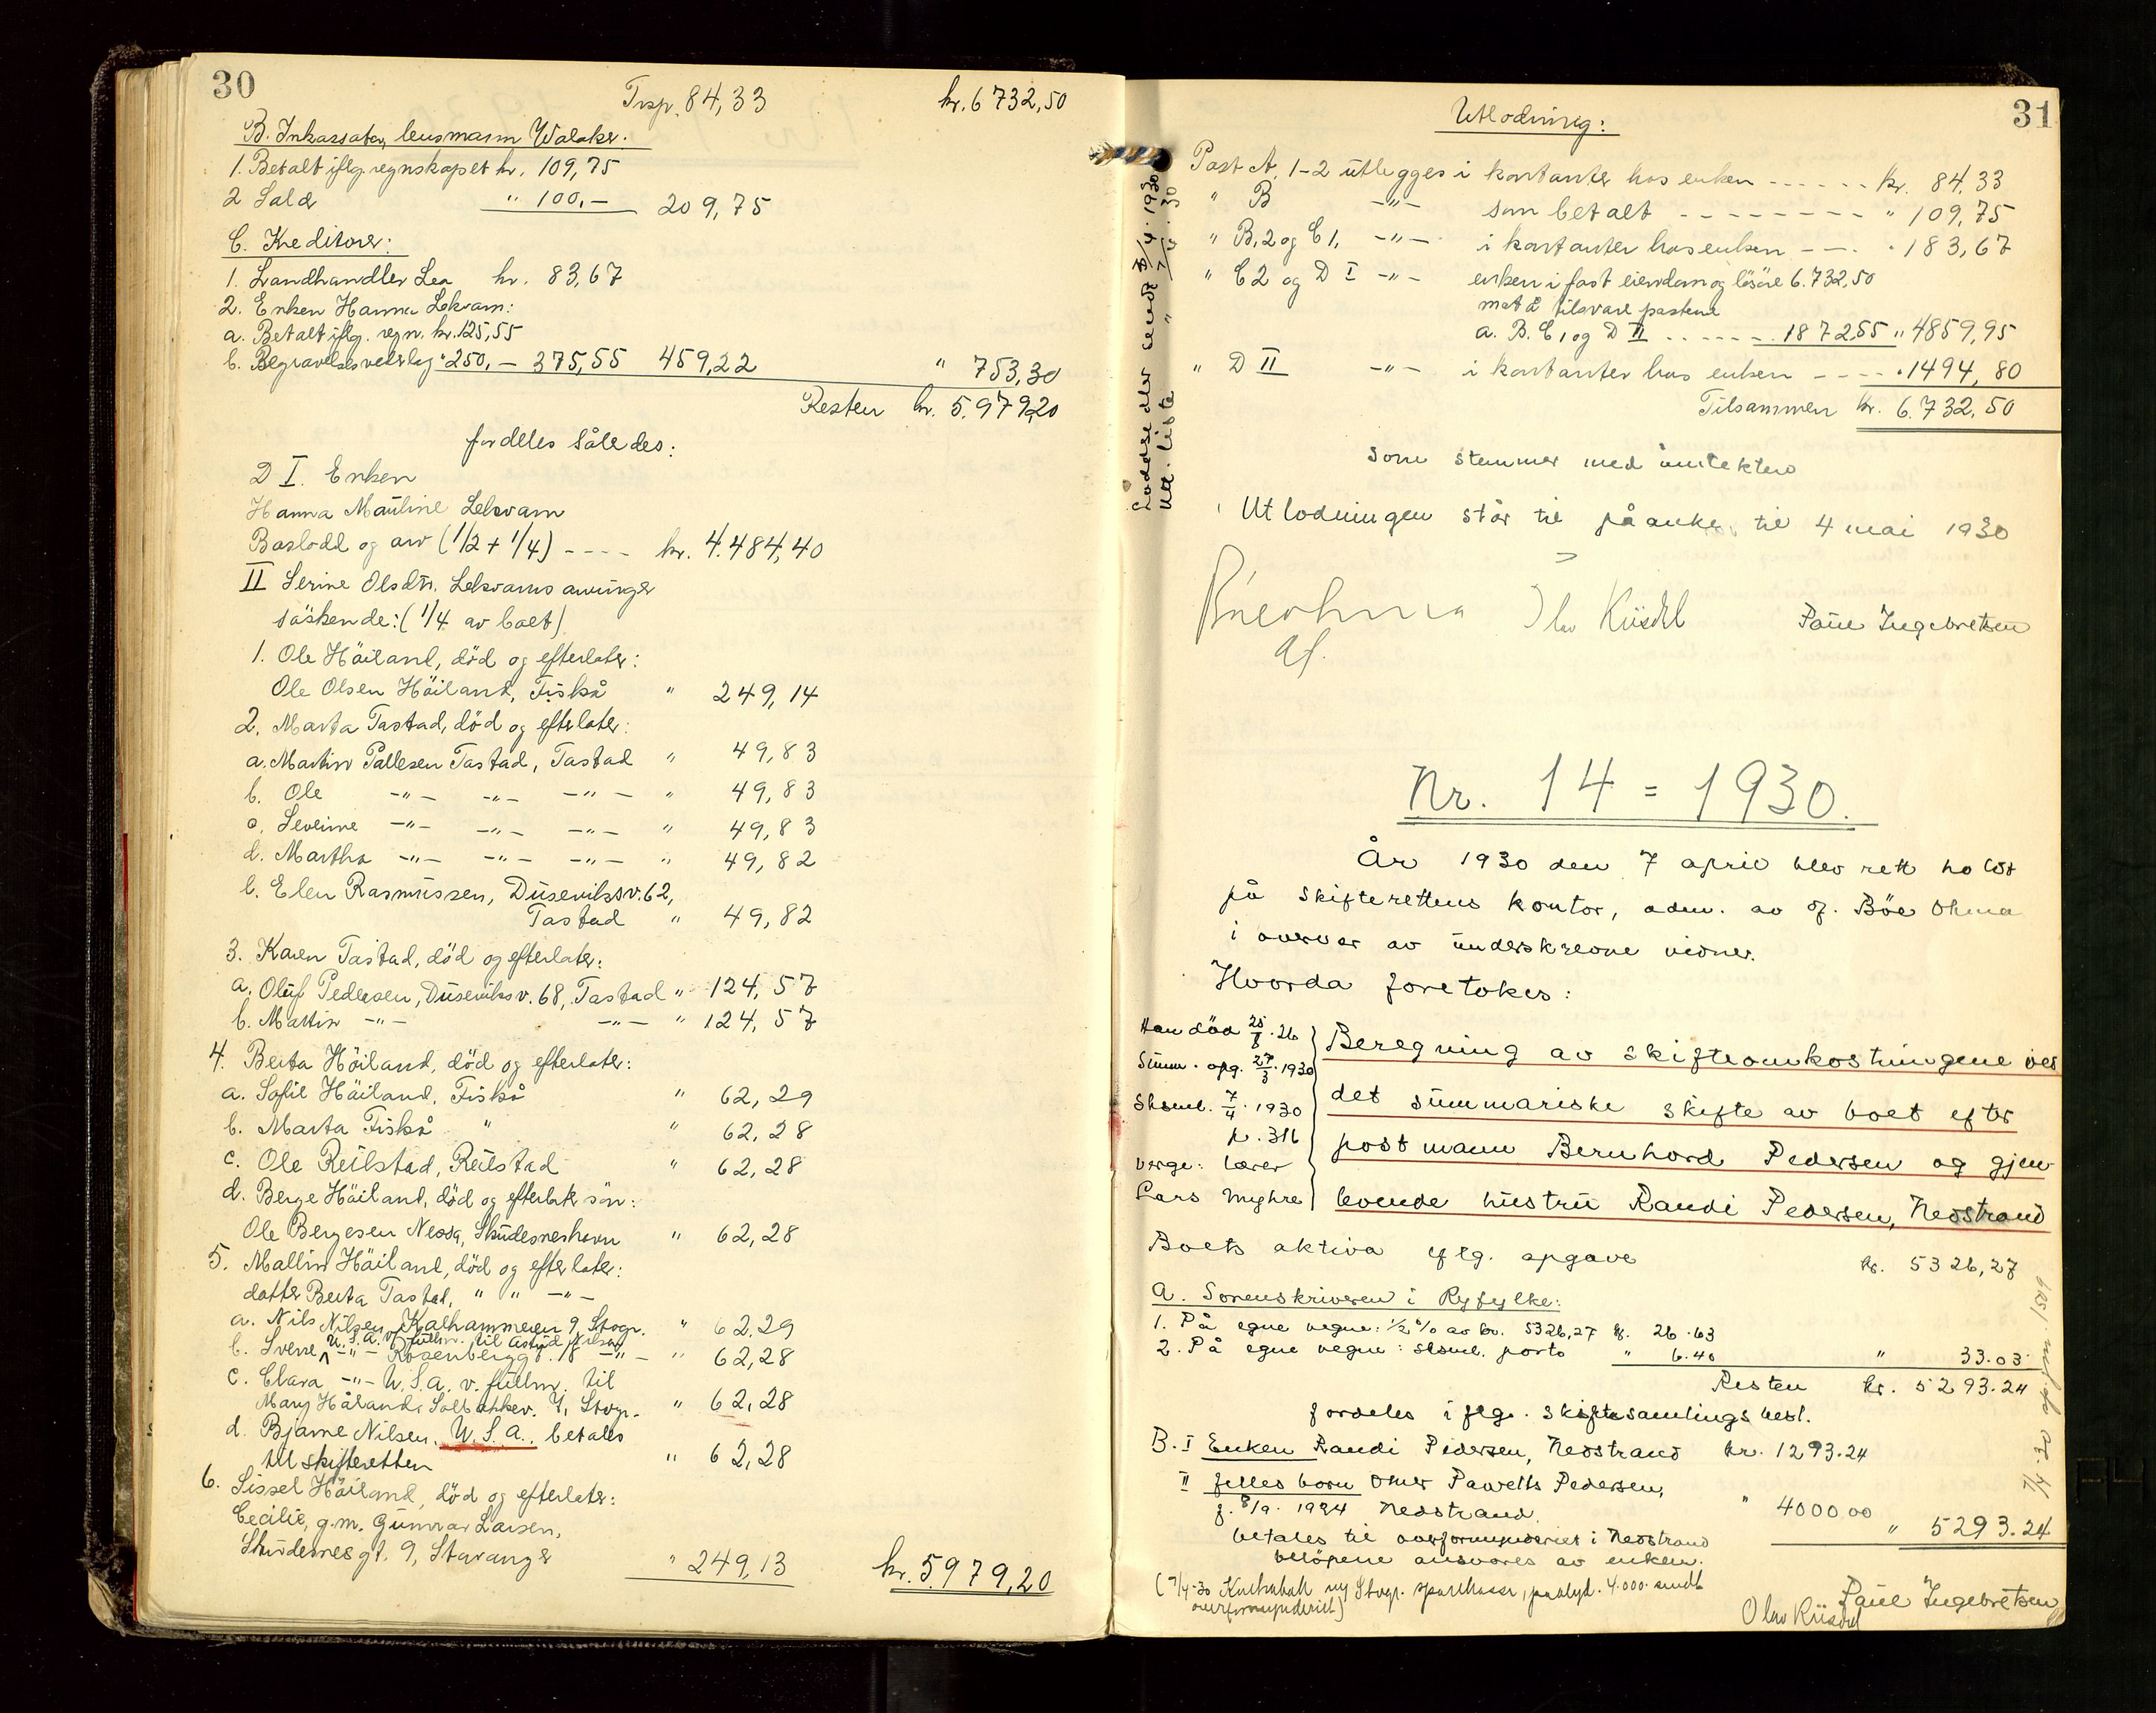 30
Trsp. 84,33 kr. 6732,50
B. Inkassator, lensmann Walaker.
1. Betalt iflg. regnskapet kr. 109,75
2 Salær " 100,- 209,75
C. Kreditorer:
1. Landhandler Lea kr. 83,67
2. Enken Hanna Lekvam:
a. Betalt iflg. regn. kr. 125,55
b. Begravelsesvederlag " 250,- 375,55 459,22 " 753,30
Resten kr. 5.979,20
fordeles således:
D I. Enken
Hanna Mauline Lekvam
Boslodd og arv (1/2 + 1/4) ---- kr. 4.484,40
II Serine Olsdtr. Lekvams arvinger
søskende: (1/4 av boet)
1. Ole Høiland, død og efterlater:
Ole Olsen Høiland, Fiskå " 249,14
2. Marta Tastad, død og efterlater:
a. Martin Pallesen Tastad, Tastad " 49,83
b. Ole -"- -"- -"- " 49,83
c. Severine -"- -"- -"- " 49,83
d. Martha -"- -"- -"- " 49,82
e. Elen Rasmussen, Duseviksv. 62,
Tastad " 49,82
3. Karen Tastad, død og efterlater:
a. Oluf Pedersen, Duseviksv. 68, Tastad " 124,57
b. Martin -"- -"- " 124,57
4. Berta Høiland, død og efterlater:
a. Sofie Høiland, Fiskå " 62,29
b. Marta Fiskå " " 62,28
c. Ole Reilstad, Reilstad " 62,28
d. Berge Høiland, død og efterlate søn:
Ole Bergesen Nessa, Skudesneshavn " 62,28
5. Mallin Høiland, død og efterlater:
datter Berta Tastad, " " -"-
a. Nils Nilsen, Kalhammeren 9 Stvgr. " 62,29
U.S.A. v/ fullm. til Astrid Nilsen
b. Sverre -"- Rosenbergg. 18 -"- " 62,28
c. Clara -"- U.S.A. v. fullm. til
Mary Håland, Solbakkev. 4, Stvgr. " 62,28
d. Bjarne Nilsen, U.S.A., betales
til skifteretten " 62,28
6. Sissel Høiland, død og efterlater:
Cecilie, g.m. Gunvar Larsen,
Skudenesgt. 9, Stavanger " 249,13 kr. 5979,20
31
Utlodning:
Post A, 1-2 utlegges i kontanter hos enken ------ kr. 84,33
" B -"- som betalt -------- " 109,75
" B, 2 og C 1, -"- i kontanter hos enken --- " 183,67
" C 2 og D I -"- enken i fast eiendom og løsøre 6.732,50
mot å tilsvare postene
a. B. C 1 og D II ------ 1872,55 " 4859,95
" D II -"- i kontanter hos enken ---- " 1494,80
Tilsammen kr. 6.732,50
som stemmer med inntekten
Utlodningen står til påanke til 4 mai 1930
Olav Risdal Paul Ingebretsen
Af.
Loddsedler sendt 7/4. 1930
Utl. liste " 7/4. 30
Nr. 14 = 1930.
År 1930 den 7 april blev rett holdt
på skifterettens kontor, adm. av f. Böe Ohma
i overvær av underskrevne vidner.
Hvorda foretokes:
Han død 25/8. 26
Summ. opg. 27/3. 1930
Sksml. 7/4. 1930
p. 316
Verge: lærer
Lars Myhre
Beregning av skifteomkostningene ved
det summariske skifte av boet efter
postmann Bernhard Pedersen og gjen-
levende hustru Randi Pedersen, Nedstrand
Boets aktiva iflg. opgave kr. 5326,27
A. Sorenskriveren i Ryfylke:
1. På egne vegne: 1/2 % av kr. 5326,27 kr. 26.63
2. På egne vegne: sksml. porto " 6.40 " 33.03
Resten kr. 5293.24
fordeles iflg. skiftesamlings besl.
B. I Enken Randi Pedersen, Nedstrand kr. 1293.24
II felles barn Omer Pawells Pedersen,
f. 8/9. 1924 Nedstrand. " 4000.00 " 5293.24
betales til overformynderiet i Nedstrand
beløpene ansvares av enken.
(7/4-30 Kontrabok ny Stvgr. sparekasse, pålyd. 4.000 sendt
overformynderiet)
Olav Risdal Paul Ingebretsen
7/4.30 1509